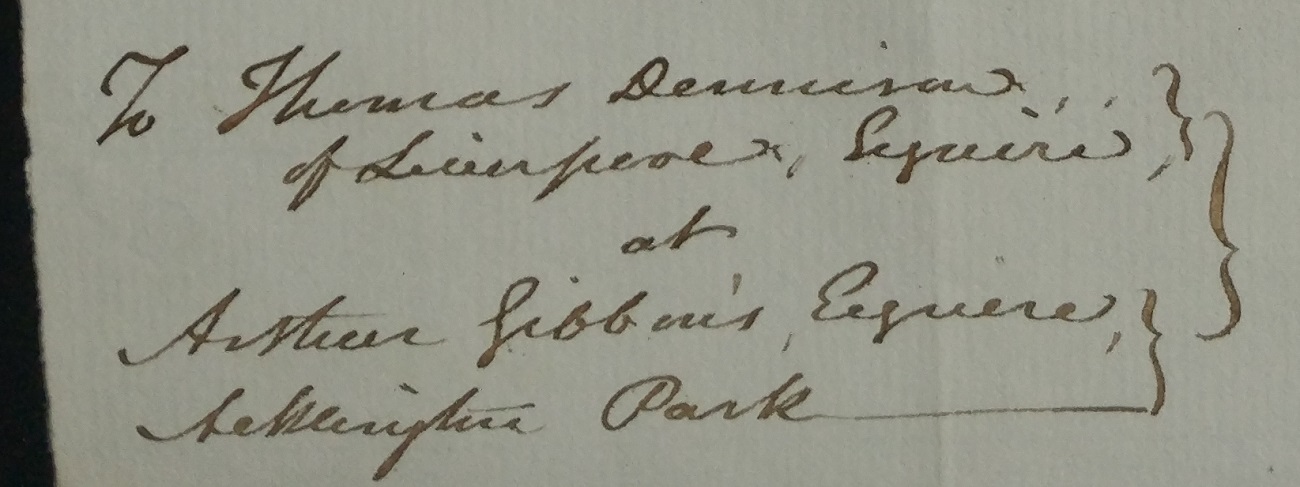 To Thomas Dennison,
of Liverpool, Esquire,
at
Arthur Gibbon's, Esquire,
Park